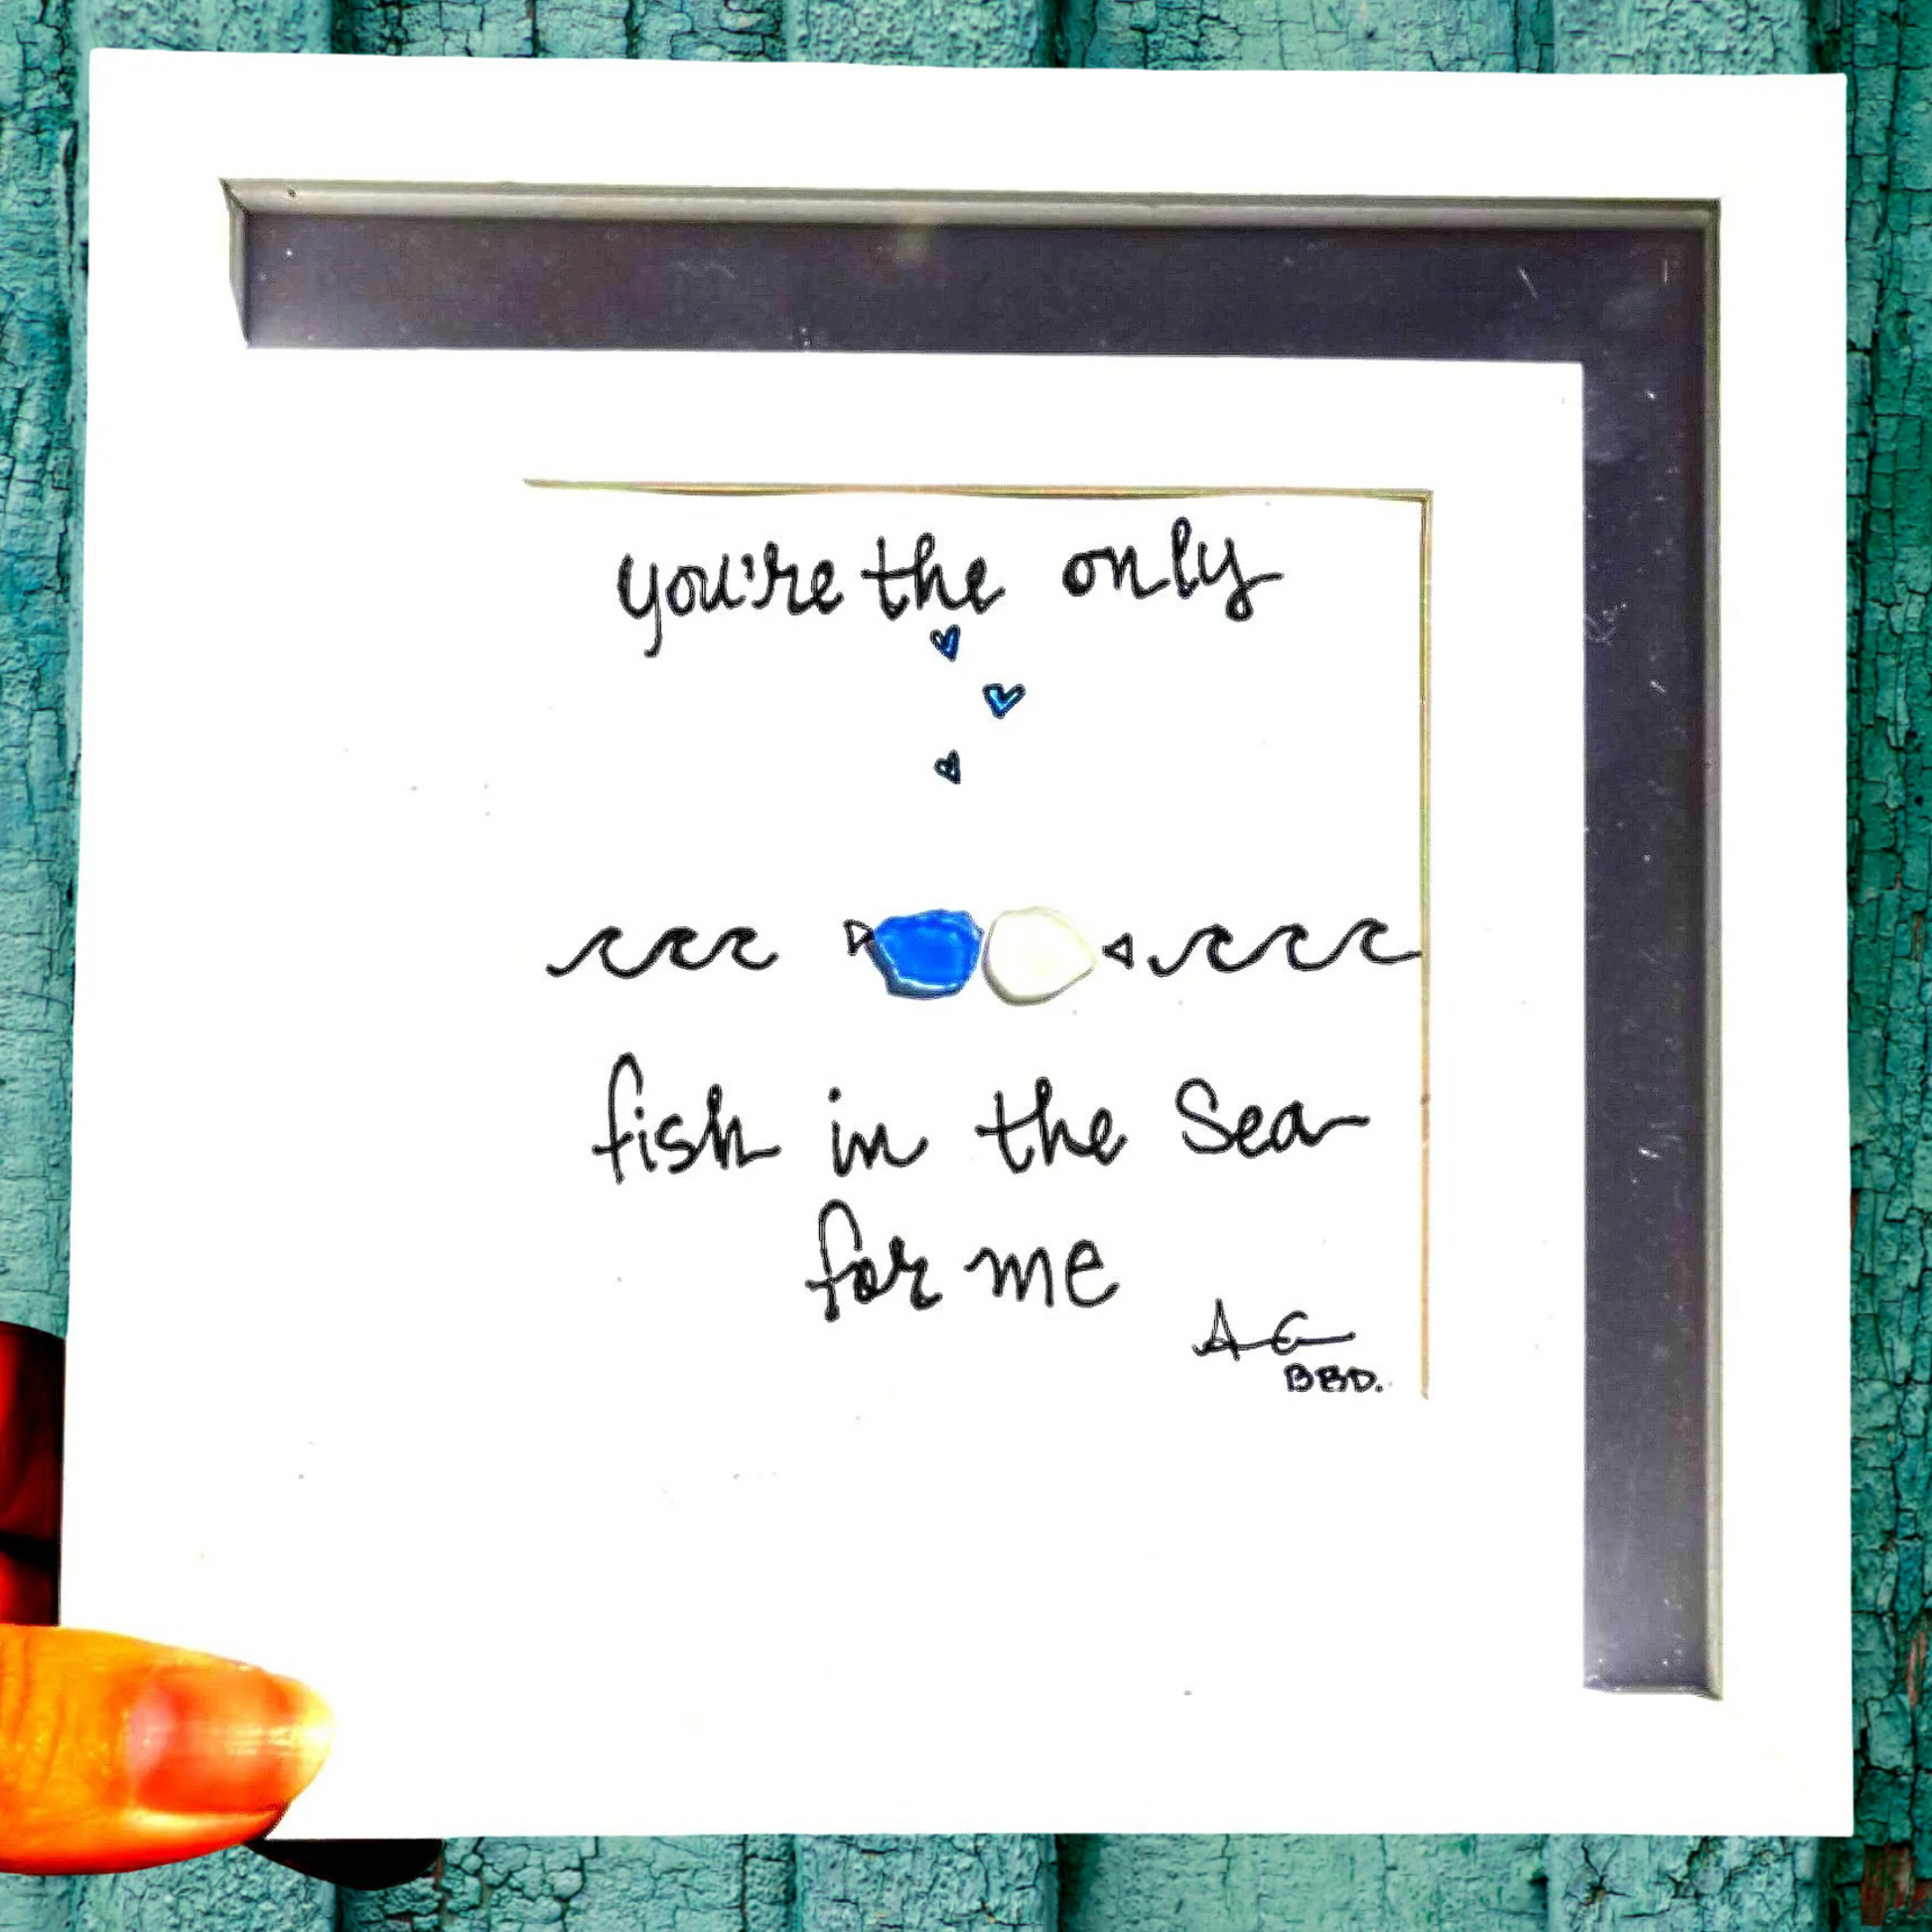 you're the only
fish in the Sea
for me
AG
BBD.